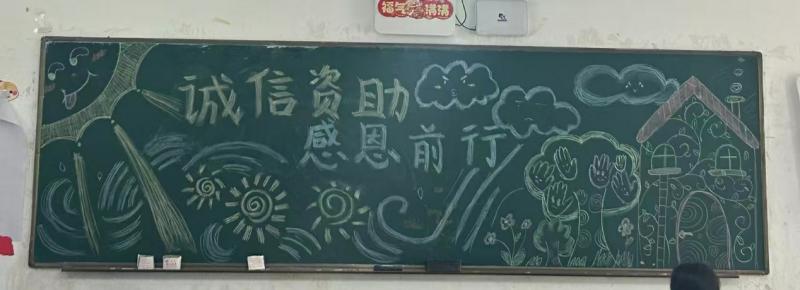 福气满满
诚信资助
感恩前行